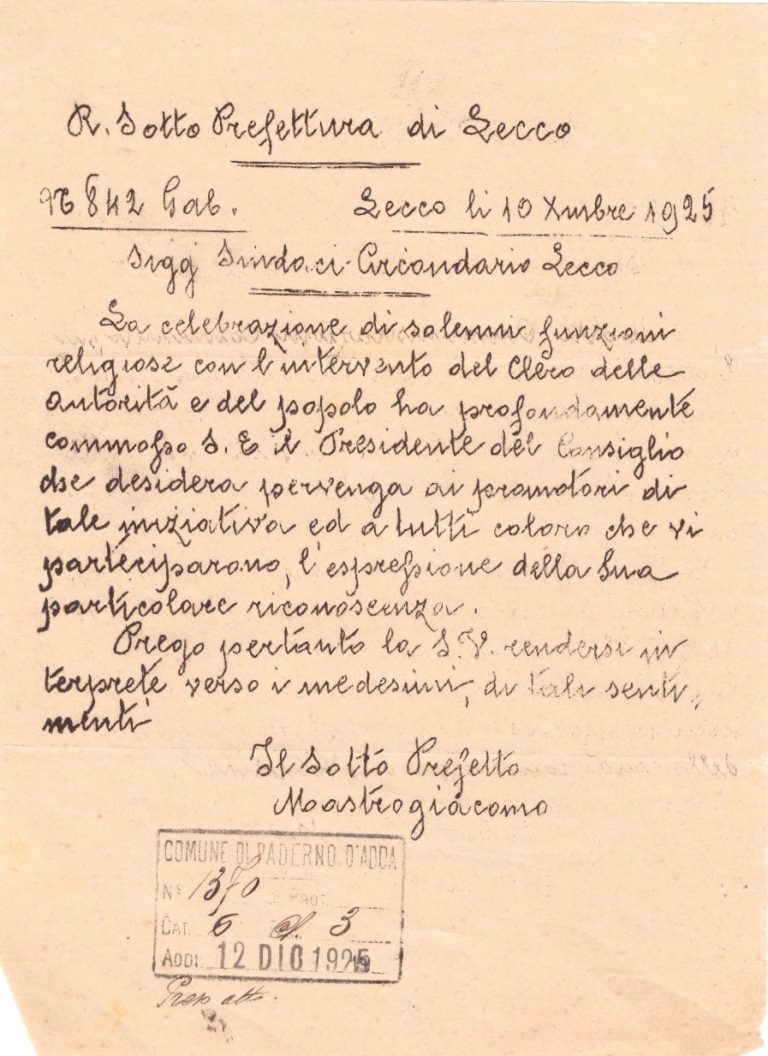 R. Sotto Prefettura di Lecco
N 842 Gab. Lecco li 10 Xmbre 1925
Sigg Sindaci Circondario Lecco
La celebrazione di solenni funzioni
religiose con l'intervento del Clero delle
autorità e del popolo ha profondamente
commosso S. E il Presidente del Consiglio
che desidera pervenga ai promotori di
tale iniziativa ed a tutti coloro che vi
parteciparono, l'espressione della Sua
particolare riconoscenza.
Prego pertanto la S.V. rendersi in
terprete verso i medesimi, di tali senti,,
menti
Il Sotto Prefetto
Mastrogiacomo
COMUNE DI PADERNO D'ADDA
No 1370 di Prot.
Cat. 6 cl. 3
Addi 12 DIC 1925
Preso atto.